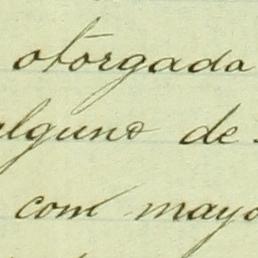 otorgada
alguno de
com mayo